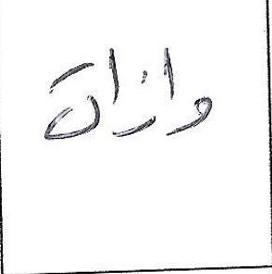 وازاة